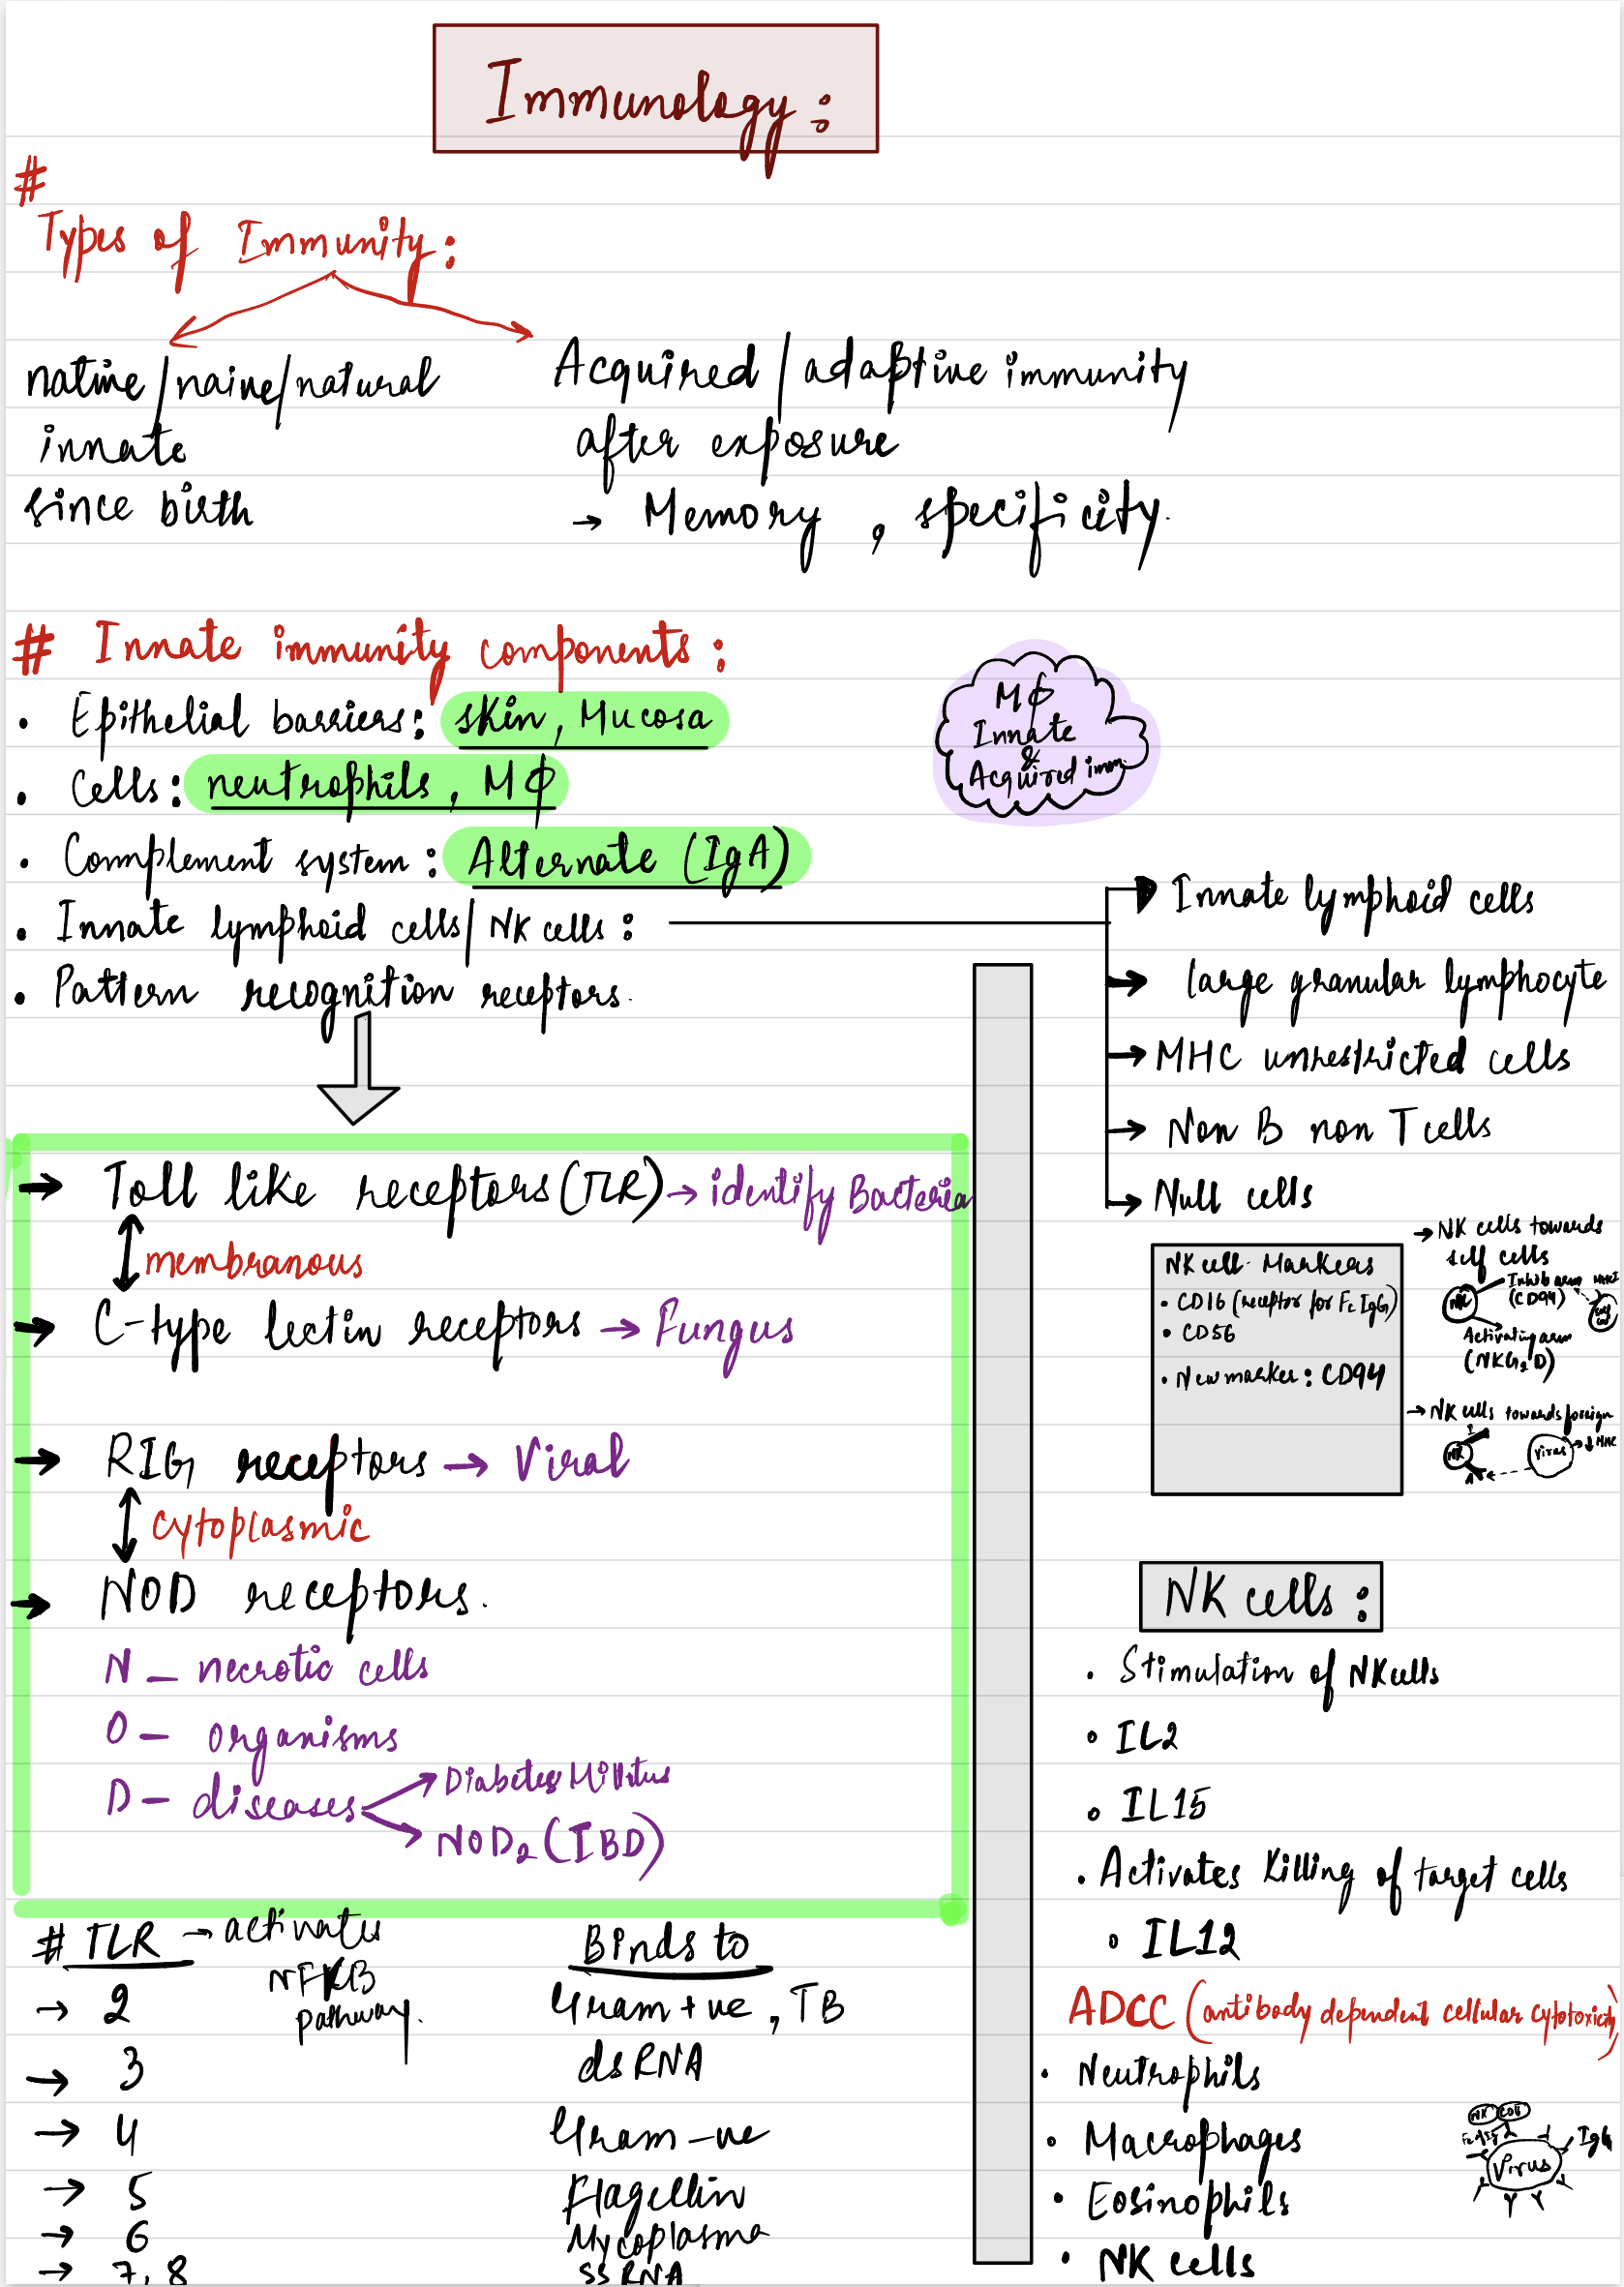 Immunology :
#
Types of Immunity :
native/naive/natural
innate
since birth
Acquired / adaptive immunity
after exposure
→ Memory , specificity.
# Innate immunity components :
• Epithelial barriers : skin, Mucosa
• Cells : neutrophils, Mϕ
• Complement system : Alternate (IgA)
• Innate lymphoid cells / NK cells :
• Pattern recognition receptors.
Mϕ
Innate
&
Acquired imm.
Innate lymphoid cells
→ large granular lymphocyte
→ MHC unrestricted cells
→ Non B non T cells
→ Null cells
→ Toll like receptors (TLR) → identify Bacteria
membranous
→ C-type lectin receptors → Fungus
→ RIG receptors → Viral
Cytoplasmic
→ NOD receptors.
N – necrotic cells
O – organisms
D – diseases
Diabetes Mellitus
NOD2 (IBD)
NK cell Markers
• CD16 (receptor for Fc IgG)
• CD56
• New marker : CD94
→ NK cells towards
self cells
NK
Inhib arm
(CD94)
MHC I
Activating arm
(NKG2D)
→ NK cells towards foreign
I
NK
A
Virus
→ ↓ MHC
NK cells :
• Stimulation of NK cells
• IL2
• IL15
• Activates killing of target cells
• IL12
ADCC (antibody dependent cellular cytotoxicity)
• Neutrophils
• Macrophages
• Eosinophils
• NK cells
NK
Virus
IgG
# TLR → activates
NFKB
pathway.
Binds to
→ 2 Gram +ve, TB
→ 3 dsRNA
→ 4 Gram -ve
→ 5 Flagellin
→ 6 Mycoplasma
→ 7, 8 ssRNA